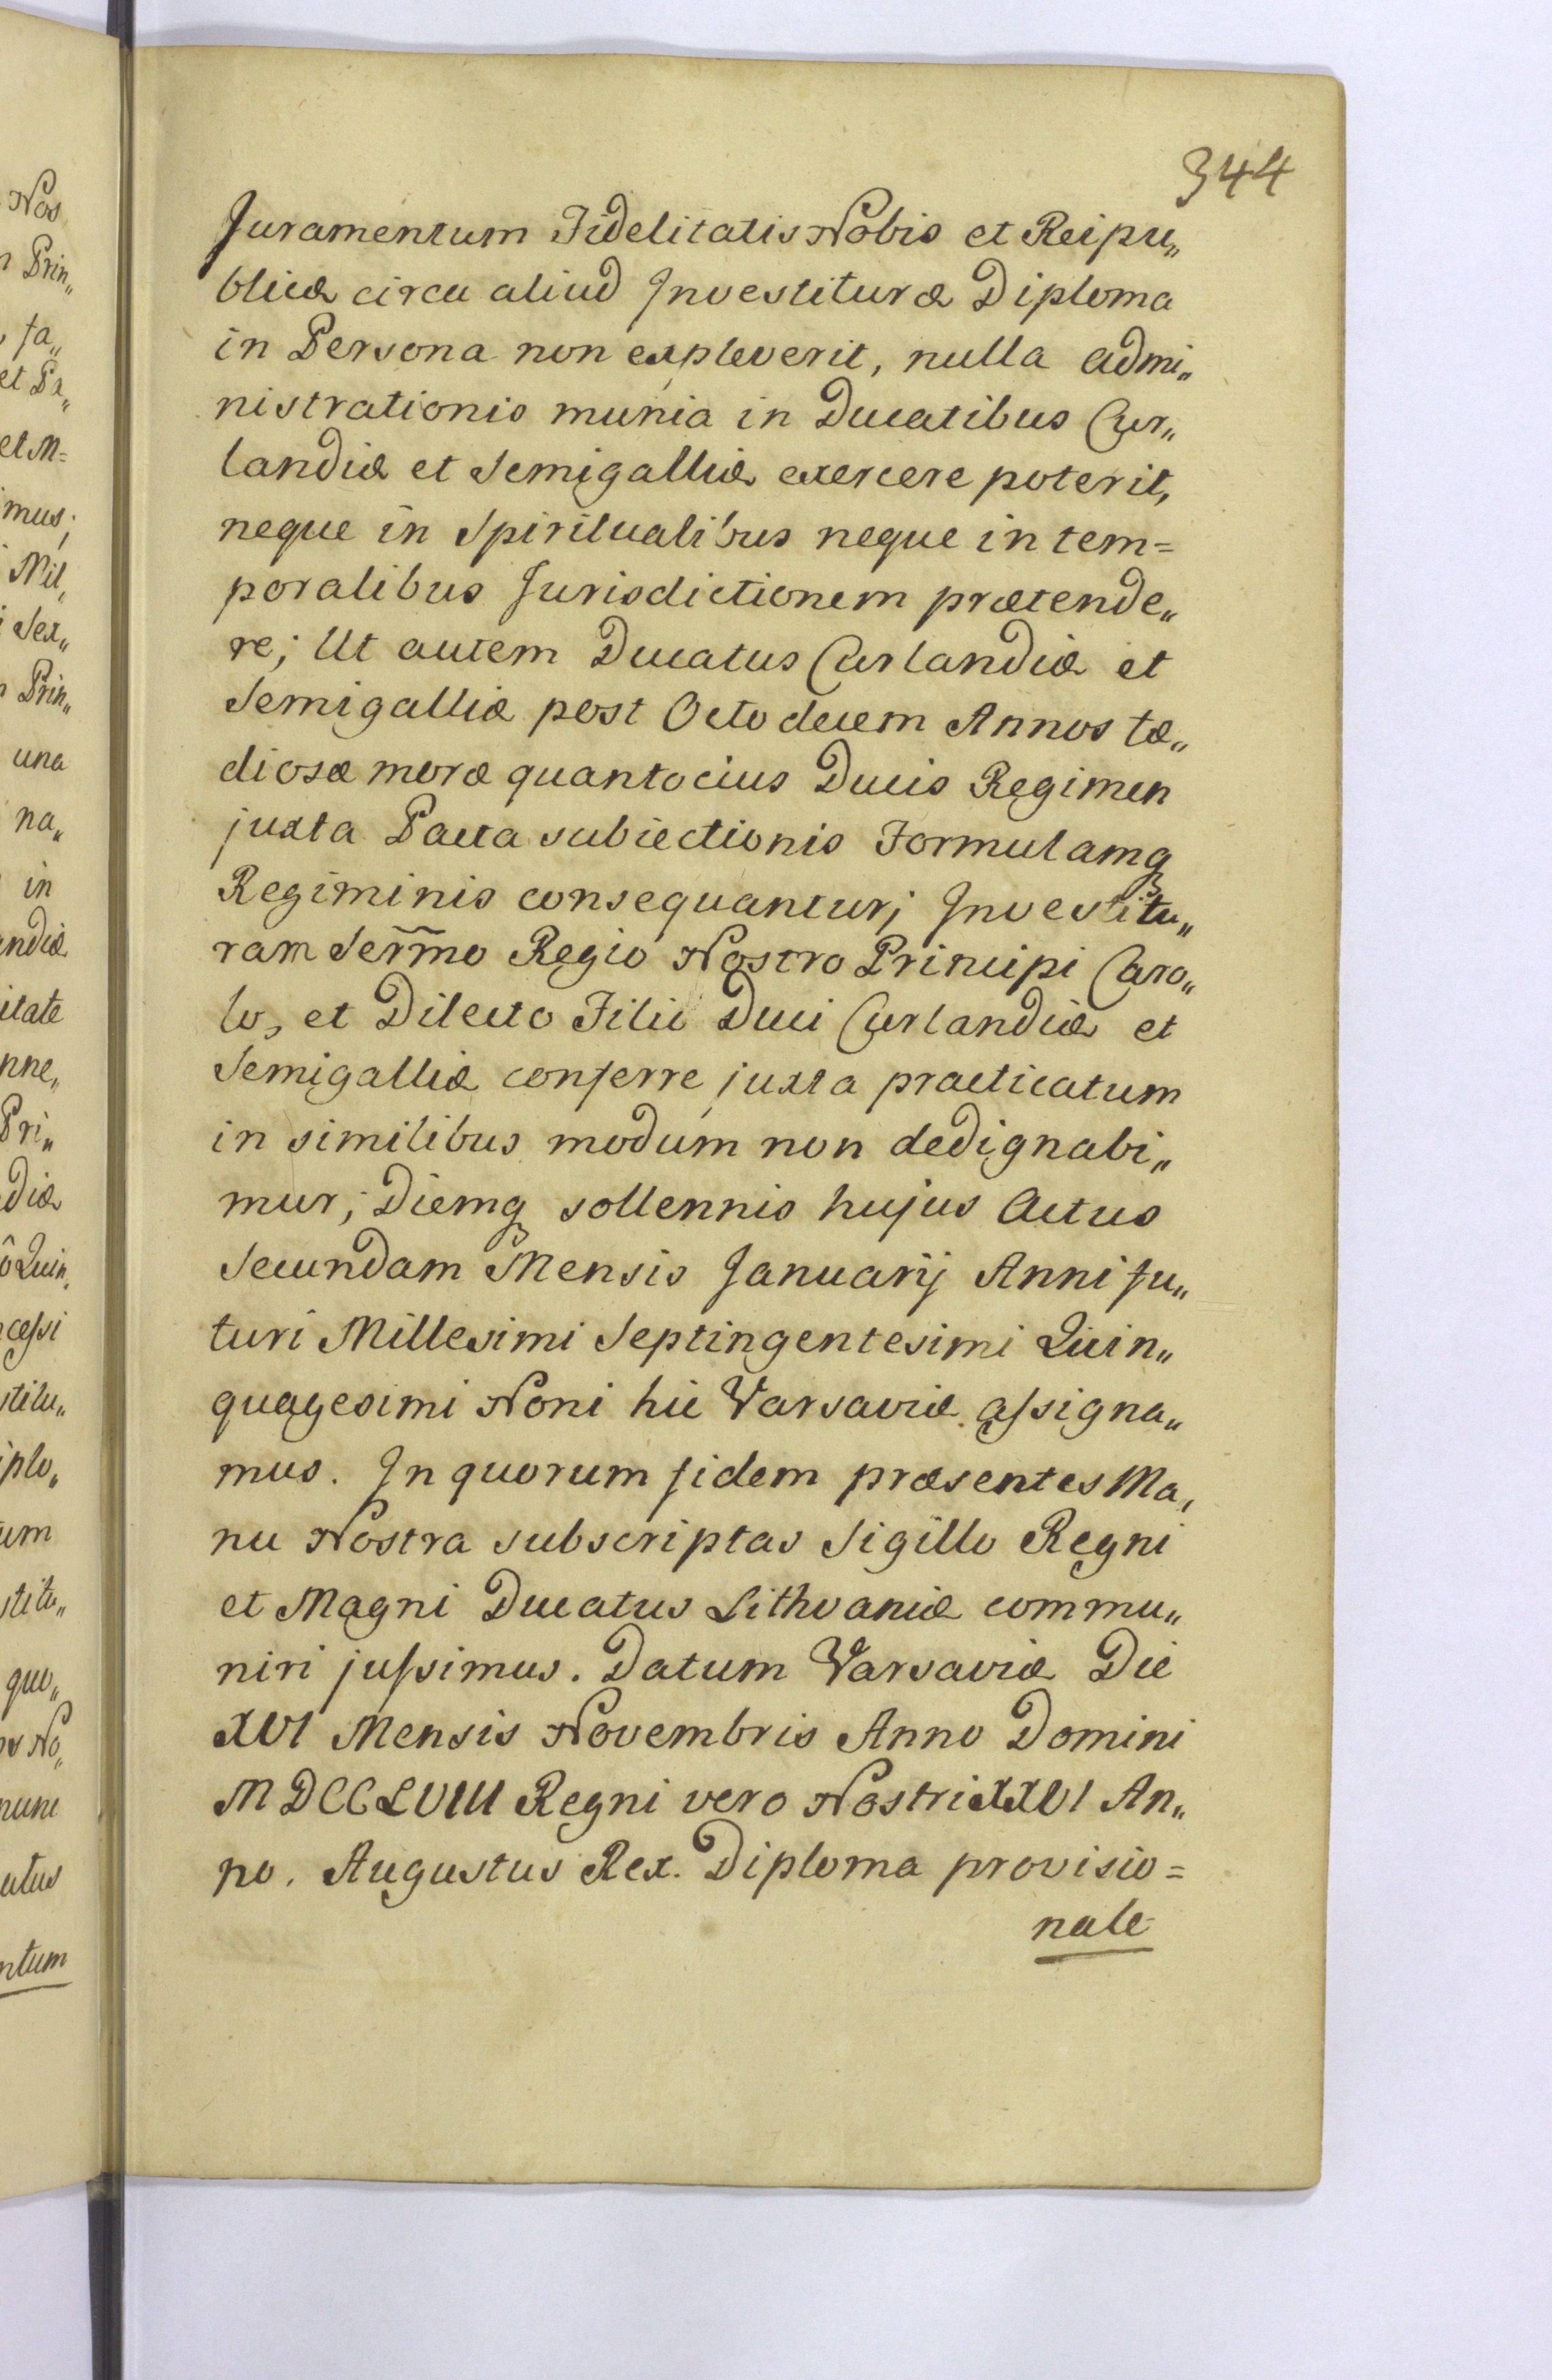 344
Juramentum Fidelitatis Nobis et Reipu„
blicæ circa aliud Investituræ Diploma
in Persona non expleverit, nulla admi„
nistrationis munia in Ducatibus Cur„
landiæ et Semigalliæ exercere poterit,
neque in Spiritualibus neque in tem=
poralibus Jurisdictionem prætende„
re; Ut autem Ducatus Curlandiæ et
Semigalliæ post Octodecem Annos tæ„
diosæ moræ quantocius Ducis Regimen
juxta Pacta subiectionis Formulamq
Regiminis consequantur; Investitu„
ram Serm̃o Regio Nostro Principi Caro„
lo, et Dilecto Filio Duci Curlandiæ et
Semigalliæ conferre juxta practicatum
in similibus modum non dedignabi„
mur; Diemq sollennis hujus Actus
Secundam Mensis Januarij Anni fu„
turi Millesimi Septingentesimi Quin„
quagesimi Noni hic Varsaviæ assigna„
mus. In quorum fidem præsentes Ma,
nu Nostra subscriptas Sigillo Regni
et Magni Ducatus Lithvaniæ commu„
niri jussimus. Datum Varsaviæ Die
XVI Mensis Novembris Anno Domini
MDCCLVIII Regni vero Nostri XXVI An„
no. Augustus Rex. Diploma provisio=
nale
Nos
Prin„
fa„
et Pe„
et M=
mus;
Mil,
Sex„
Prin„
una
na„
in
andiæ
itate
nne„
Pri„
diæ
ô Quin,
cessi
stitu„
iplo„
um
stitu„
quo„
No„
nunc
atus
ntum